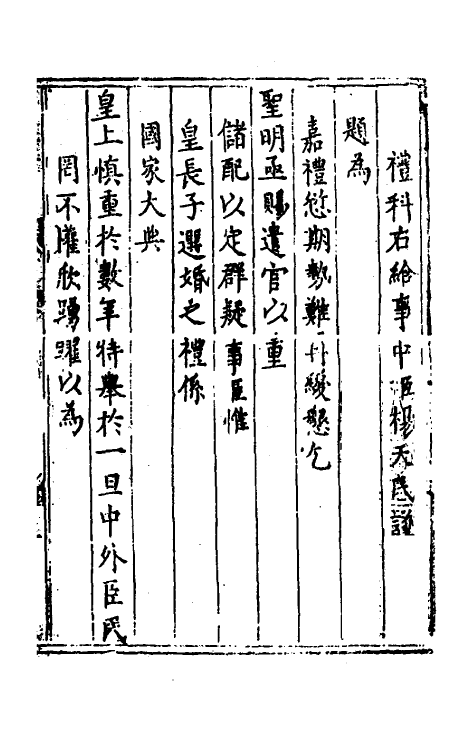 禮科右給事中臣楊天民謹
題為
嘉禮愆期勢難再緩懇乞
聖明亟賜遣官以重
儲配以定群疑事臣惟
皇長子選婚之禮係
國家大典
皇上慎重於數年特舉於一旦中外臣民
罔不懽欣踴躍以為